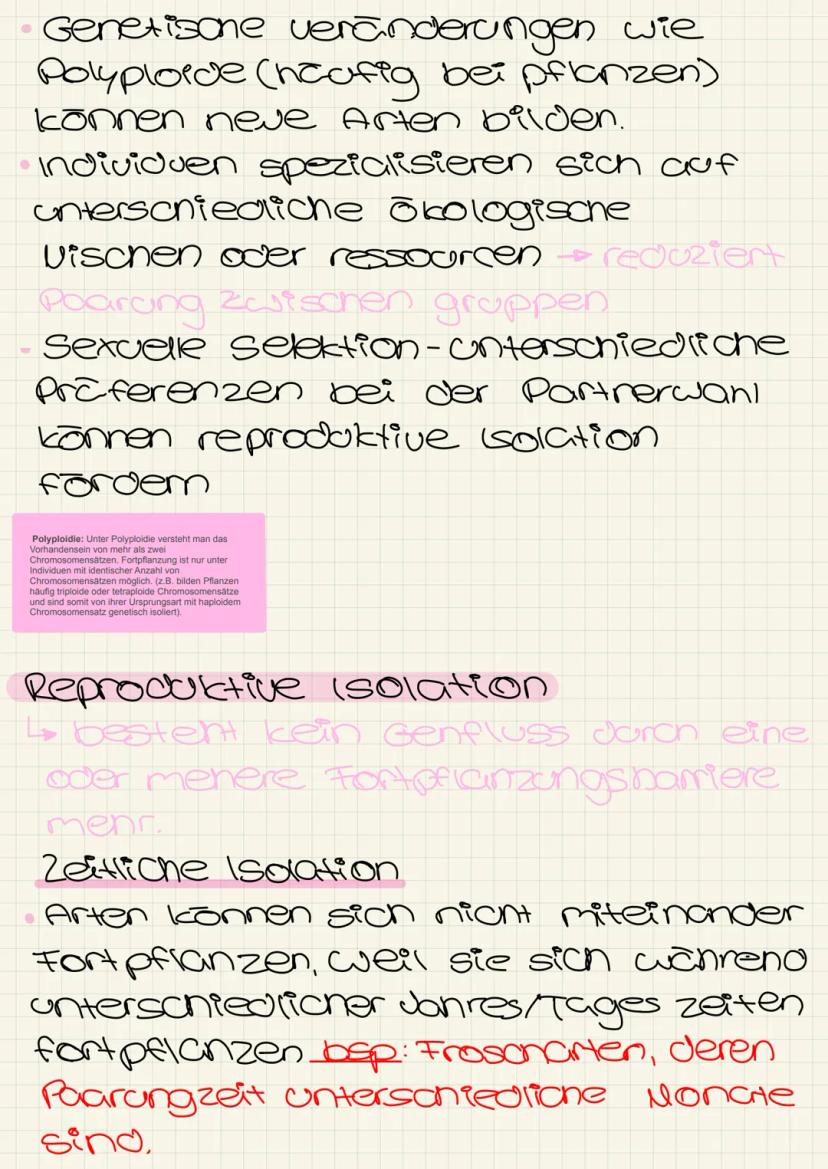 • Genetische veränderungen wie
Polyploide (häufig bei pflanzen)
können neue Arten bilden.
• Individuen spezialisieren sich auf
unterschiedliche ökologische
Nischen oder ressourcen → reduziert
Paarung zwischen gruppen
- Sexuelle Selektion - unterschiedliche
Präferenzen bei der Partnerwahl
können reproduktive Isolation
fördern
Polyploidie: Unter Polyploidie versteht man das
Vorhandensein von mehr als zwei
Chromosomensätzen. Fortpflanzung ist nur unter
Individuen mit identischer Anzahl von
Chromosomensätzen möglich. (z.B. bilden Pflanzen
häufig triploide oder tetraploide Chromosomensätze
und sind somit von ihrer Ursprungsart mit haploidem
Chromosomensatz genetisch isoliert).
Reproduktive Isolation
↳ besteht kein Genfluss durch eine
oder mehere Fortpflanzungsbarriere
mehr.
Zeitliche Isolation
• Arten können sich nicht miteinander
Fortpflanzen, weil sie sich während
unterschiedlicher Jahres/Tages zeiten
fortpflanzen bsp: Froscharten, deren
Paarungzeit unterschiedliche Monate
sind.